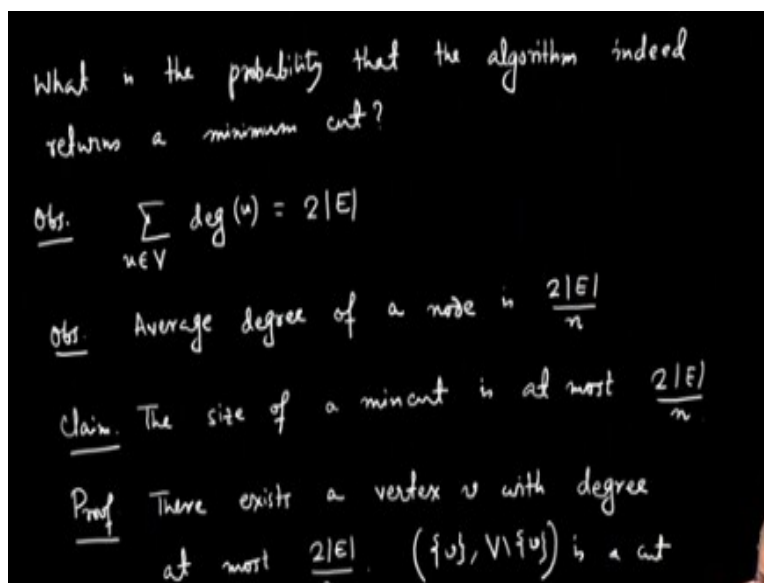 What is the probability that the algorithm indeed
returns a minimum cut?
Obs. ∑ deg(u) = 2|E|
u∈V
Obs. Average degree of a node is 2|E|/n
Claim. The size of a mincut is at most 2|E|/n.
Proof There exists a vertex v with degree
at most 2|E|. ({v}, V\{v}) is a cut